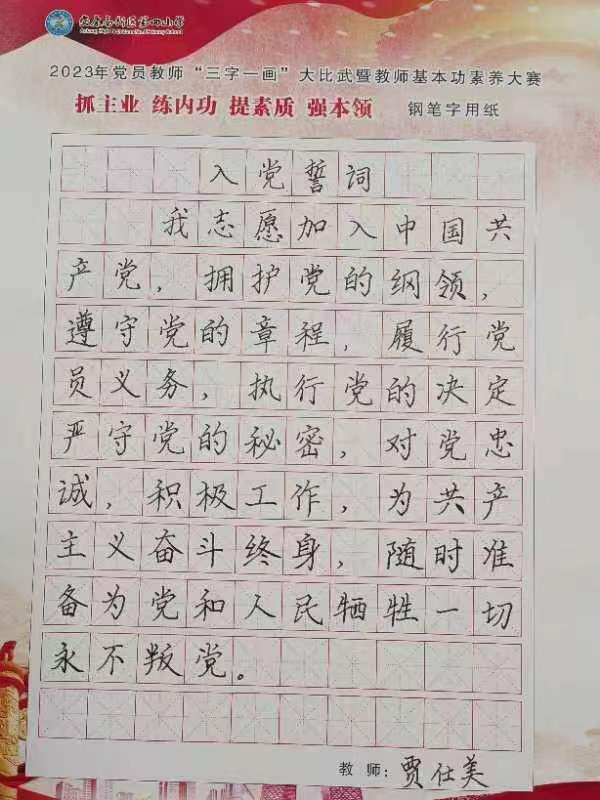 安康高新区第四小学
2023年党员教师“三字一画”大比武暨教师基本功素养大赛
抓主业 练内功 提素质 强本领 钢笔字用纸
入党誓词
我志愿加入中国共
产党，拥护党的纲领，
遵守党的章程，履行党
员义务，执行党的决定
严守党的秘密，对党忠
诚，积极工作，为共产
主义奋斗终身，随时准
备为党和人民牺牲一切
永不叛党。
教师：贾仕美